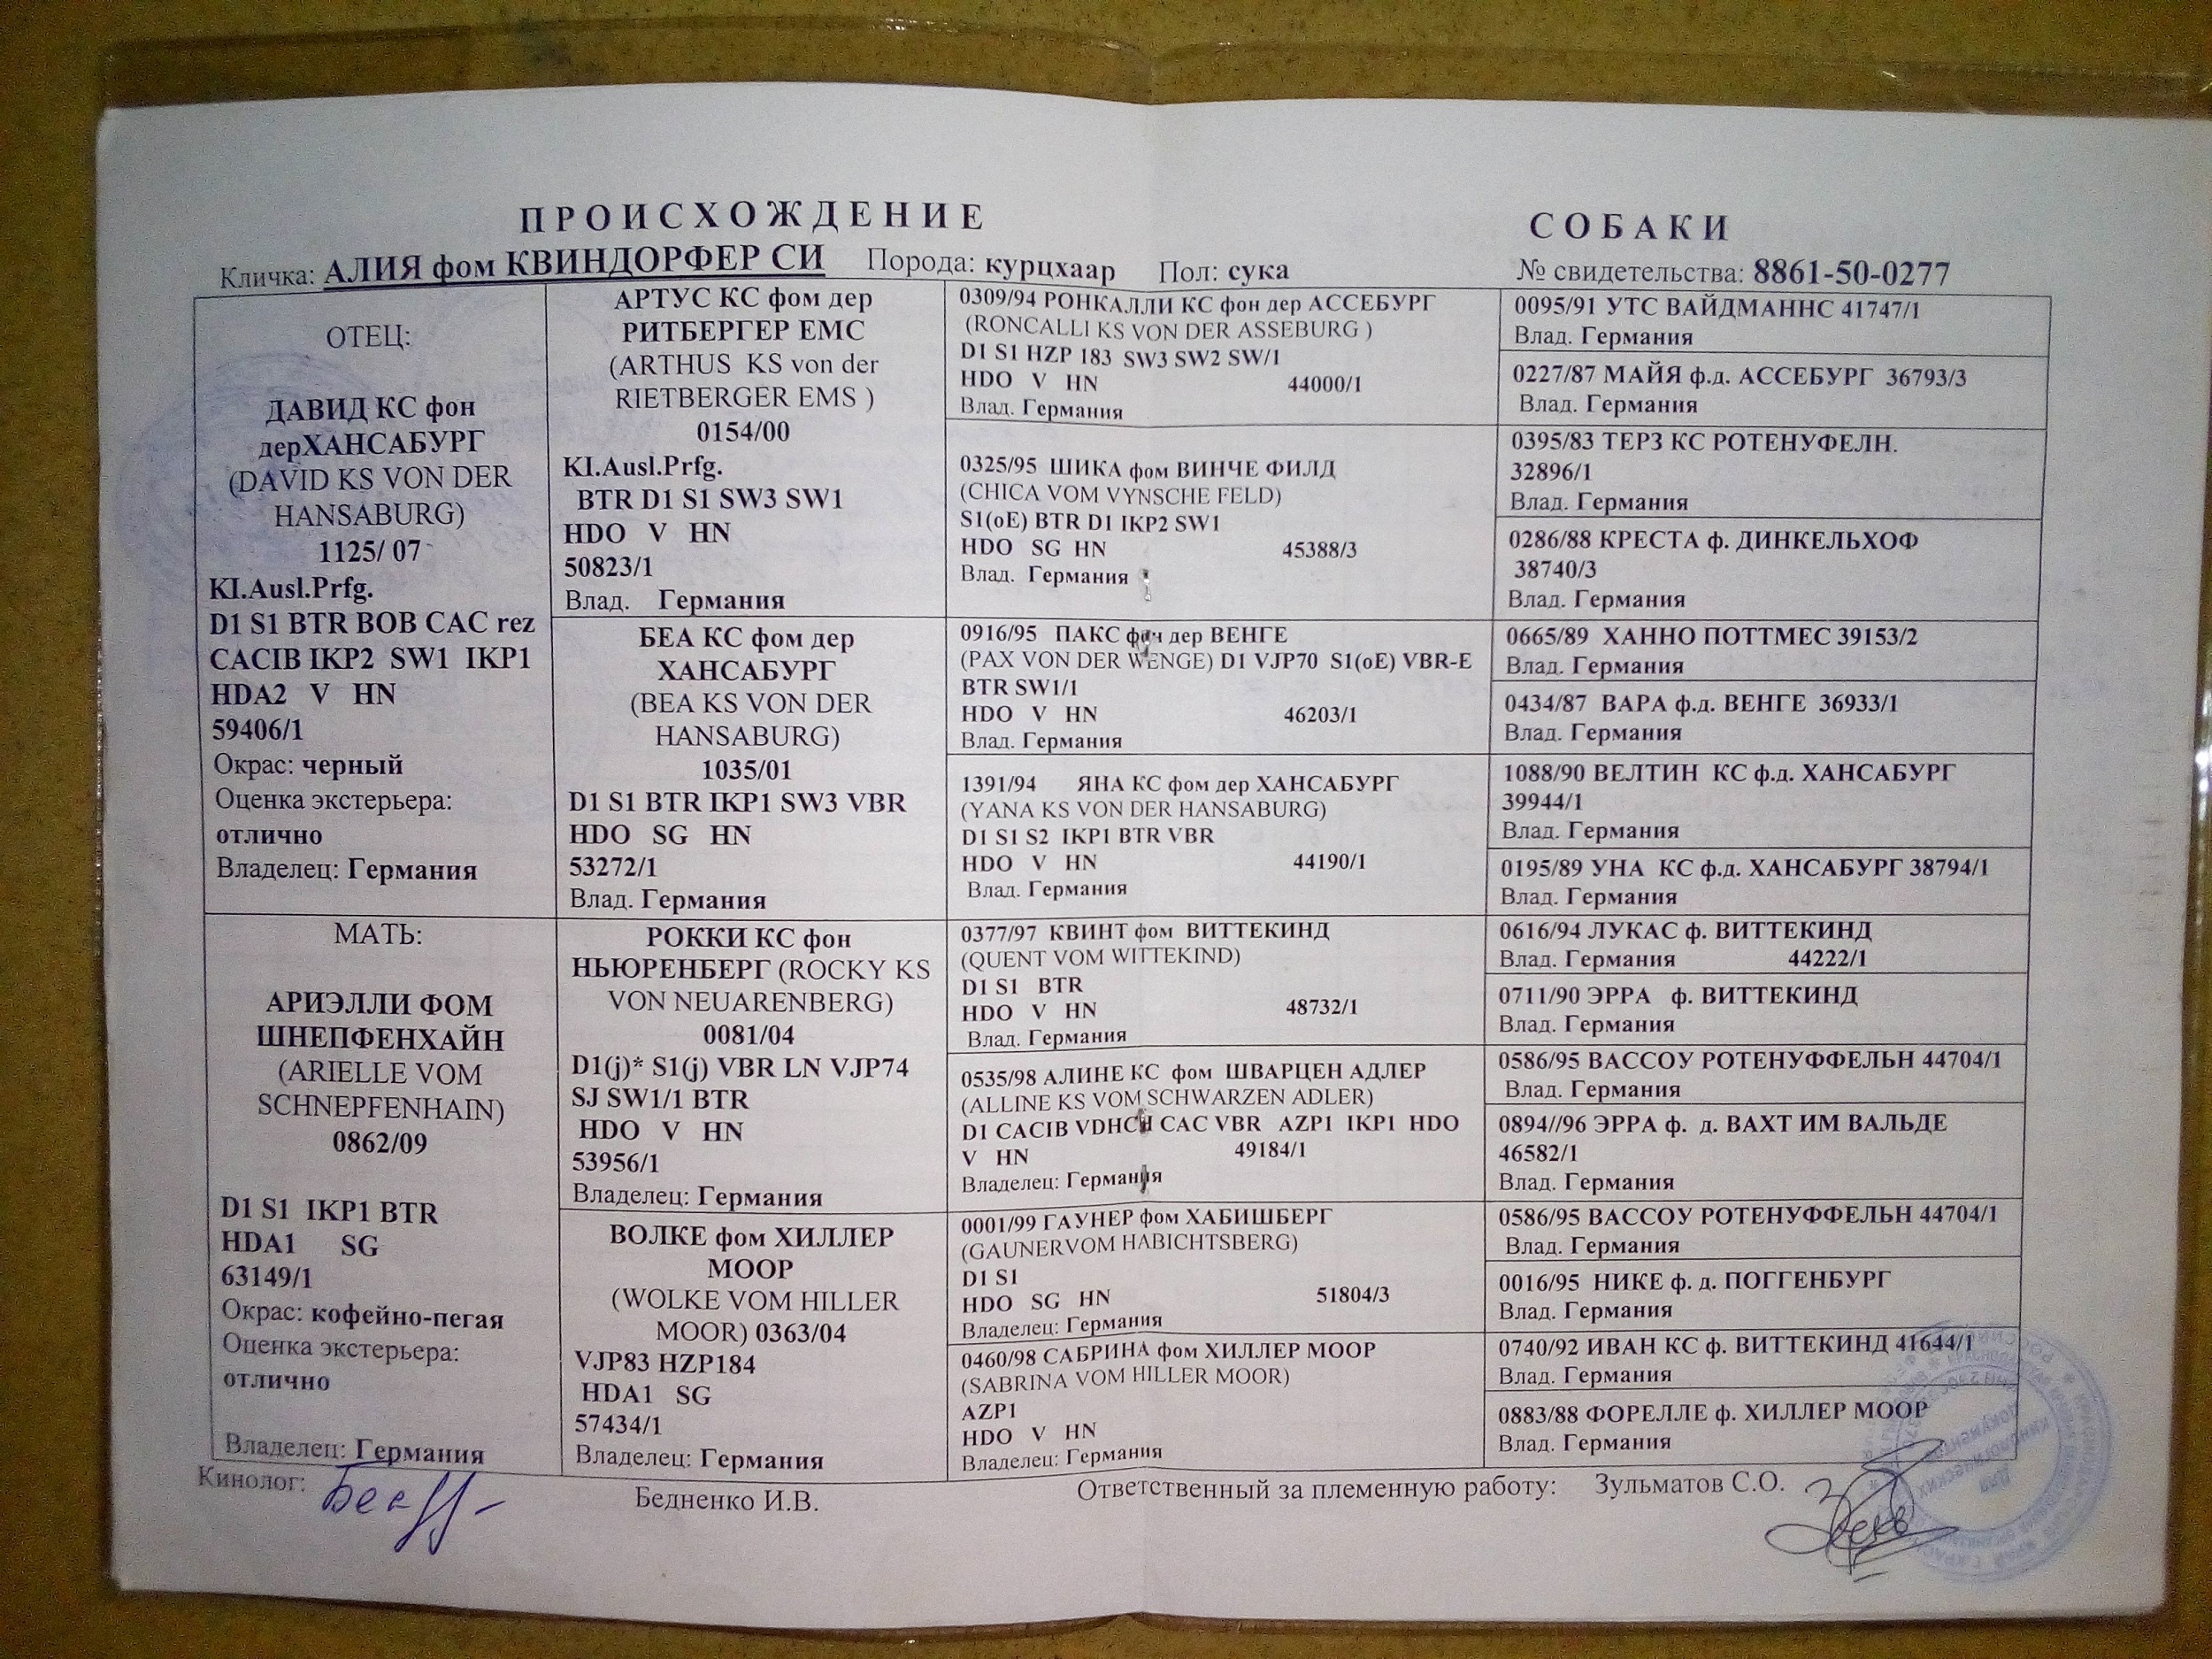 ПРОИСХОЖДЕНИЕ СОБАКИ
Кличка: АЛИЯ фом КВИНДОРФЕР СИ Порода: курцхаар Пол: сука № свидетельства: 8861-50-0277
ОТЕЦ:
ДАВИД КС фон
дерХАНСАБУРГ
(DAVID KS VON DER
HANSABURG)
1125/ 07
KI.Ausl.Prfg.
D1 S1 BTR BOB CAC rez
CACIB IKP2 SW1 IKP1
HDA2 V HN
59406/1
Окрас: черный
Оценка экстерьера:
отлично
Владелец: Германия
МАТЬ:
АРИЭЛЛИ ФОМ
ШНЕПФЕНХАЙН
(ARIELLE VOM
SCHNEPFENHAIN)
0862/09
D1 S1 IKP1 BTR
HDA1 SG
63149/1
Окрас: кофейно-пегая
Оценка экстерьера:
отлично
Владелец: Германия
АРТУС КС фом дер
РИТБЕРГЕР ЕМС
(ARTHUS KS von der
RIETBERGER EMS )
0154/00
KI.Ausl.Prfg.
BTR D1 S1 SW3 SW1
HDO V HN
50823/1
Влад. Германия
БЕА КС фом дер
ХАНСАБУРГ
(BEA KS VON DER
HANSABURG)
1035/01
D1 S1 BTR IKP1 SW3 VBR
HDO SG HN
53272/1
Влад. Германия
РОККИ КС фон
НЬЮРЕНБЕРГ (ROCKY KS
VON NEUARENBERG)
0081/04
D1(j)* S1(j) VBR LN VJP74
SJ SW1/1 BTR
HDO V HN
53956/1
Владелец: Германия
ВОЛКЕ фом ХИЛЛЕР
МООР
(WOLKE VOM HILLER
MOOR) 0363/04
VJP83 HZP184
HDA1 SG
57434/1
Владелец: Германия
0309/94 РОНКАЛЛИ КС фон дер АССЕБУРГ
(RONCALLI KS VON DER ASSEBURG )
D1 S1 HZP 183 SW3 SW2 SW/1
HDO V HN 44000/1
Влад. Германия
0325/95 ШИКА фом ВИНЧЕ ФИЛД
(CHICA VOM VYNSCHE FELD)
S1(oE) BTR D1 IKP2 SW1
HDO SG HN 45388/3
Влад. Германия
0916/95 ПАКС фон дер ВЕНГЕ
(PAX VON DER WENGE) D1 VJP70 S1(oE) VBR-E
BTR SW1/1
HDO V HN 46203/1
Влад. Германия
1391/94 ЯНА КС фом дер ХАНСАБУРГ
(YANA KS VON DER HANSABURG)
D1 S1 S2 IKP1 BTR VBR
HDO V HN 44190/1
Влад. Германия
0377/97 КВИНТ фом ВИТТЕКИНД
(QUENT VOM WITTEKIND)
D1 S1 BTR
HDO V HN 48732/1
Влад. Германия
0535/98 АЛИНЕ КС фом ШВАРЦЕН АДЛЕР
(ALLINE KS VOM SCHWARZEN ADLER)
D1 CACIB VDHCH CAC VBR AZP1 IKP1 HDO
V HN 49184/1
Владелец: Германия
0001/99 ГАУНЕР фом ХАБИШБЕРГ
(GAUNERVOM HABICHTSBERG)
D1 S1
HDO SG HN 51804/3
Владелец: Германия
0460/98 САБРИНА фом ХИЛЛЕР МООР
(SABRINA VOM HILLER MOOR)
AZP1
HDO V HN
Владелец: Германия
0095/91 УТС ВАЙДМАННС 41747/1
Влад. Германия
0227/87 МАЙЯ ф.д. АССЕБУРГ 36793/3
Влад. Германия
0395/83 ТЕРЗ КС РОТЕНУФЕЛН.
32896/1
Влад. Германия
0286/88 КРЕСТА ф. ДИНКЕЛЬХОФ
38740/3
Влад. Германия
0665/89 ХАННО ПОТТМЕС 39153/2
Влад. Германия
0434/87 ВАРА ф.д. ВЕНГЕ 36933/1
Влад. Германия
1088/90 ВЕЛТИН КС ф.д. ХАНСАБУРГ
39944/1
Влад. Германия
0195/89 УНА КС ф.д. ХАНСАБУРГ 38794/1
Влад. Германия
0616/94 ЛУКАС ф. ВИТТЕКИНД
Влад. Германия 44222/1
0711/90 ЭРРА ф. ВИТТЕКИНД
Влад. Германия
0586/95 ВАССОУ РОТЕНУФФЕЛЬН 44704/1
Влад. Германия
0894//96 ЭРРА ф. д. ВАХТ ИМ ВАЛЬДЕ
46582/1
Влад. Германия
0586/95 ВАССОУ РОТЕНУФФЕЛЬН 44704/1
Влад. Германия
0016/95 НИКЕ ф. д. ПОГГЕНБУРГ
Влад. Германия
0740/92 ИВАН КС ф. ВИТТЕКИНД 41644/1
Влад. Германия
0883/88 ФОРЕЛЛЕ ф. ХИЛЛЕР МООР
Влад. Германия
Кинолог: Бедненко И.В. Ответственный за племенную работу: Зульматов С.О.
Для
кинологических
документов